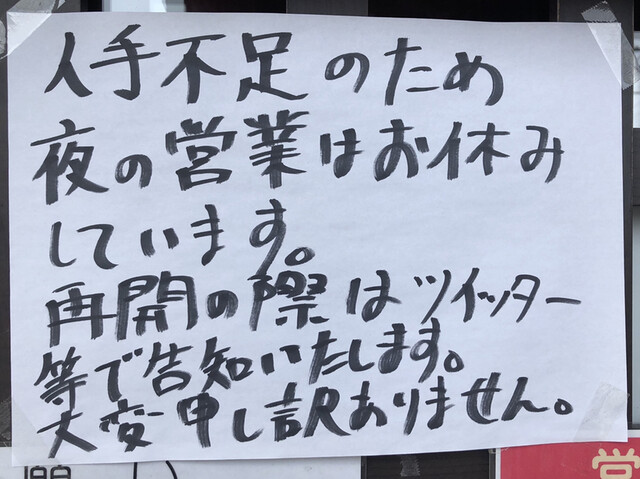 人手不足のため
夜の営業はお休み
しています。
再開の際はツイッター
等で告知いたします。
大変申し訳ありません。
営